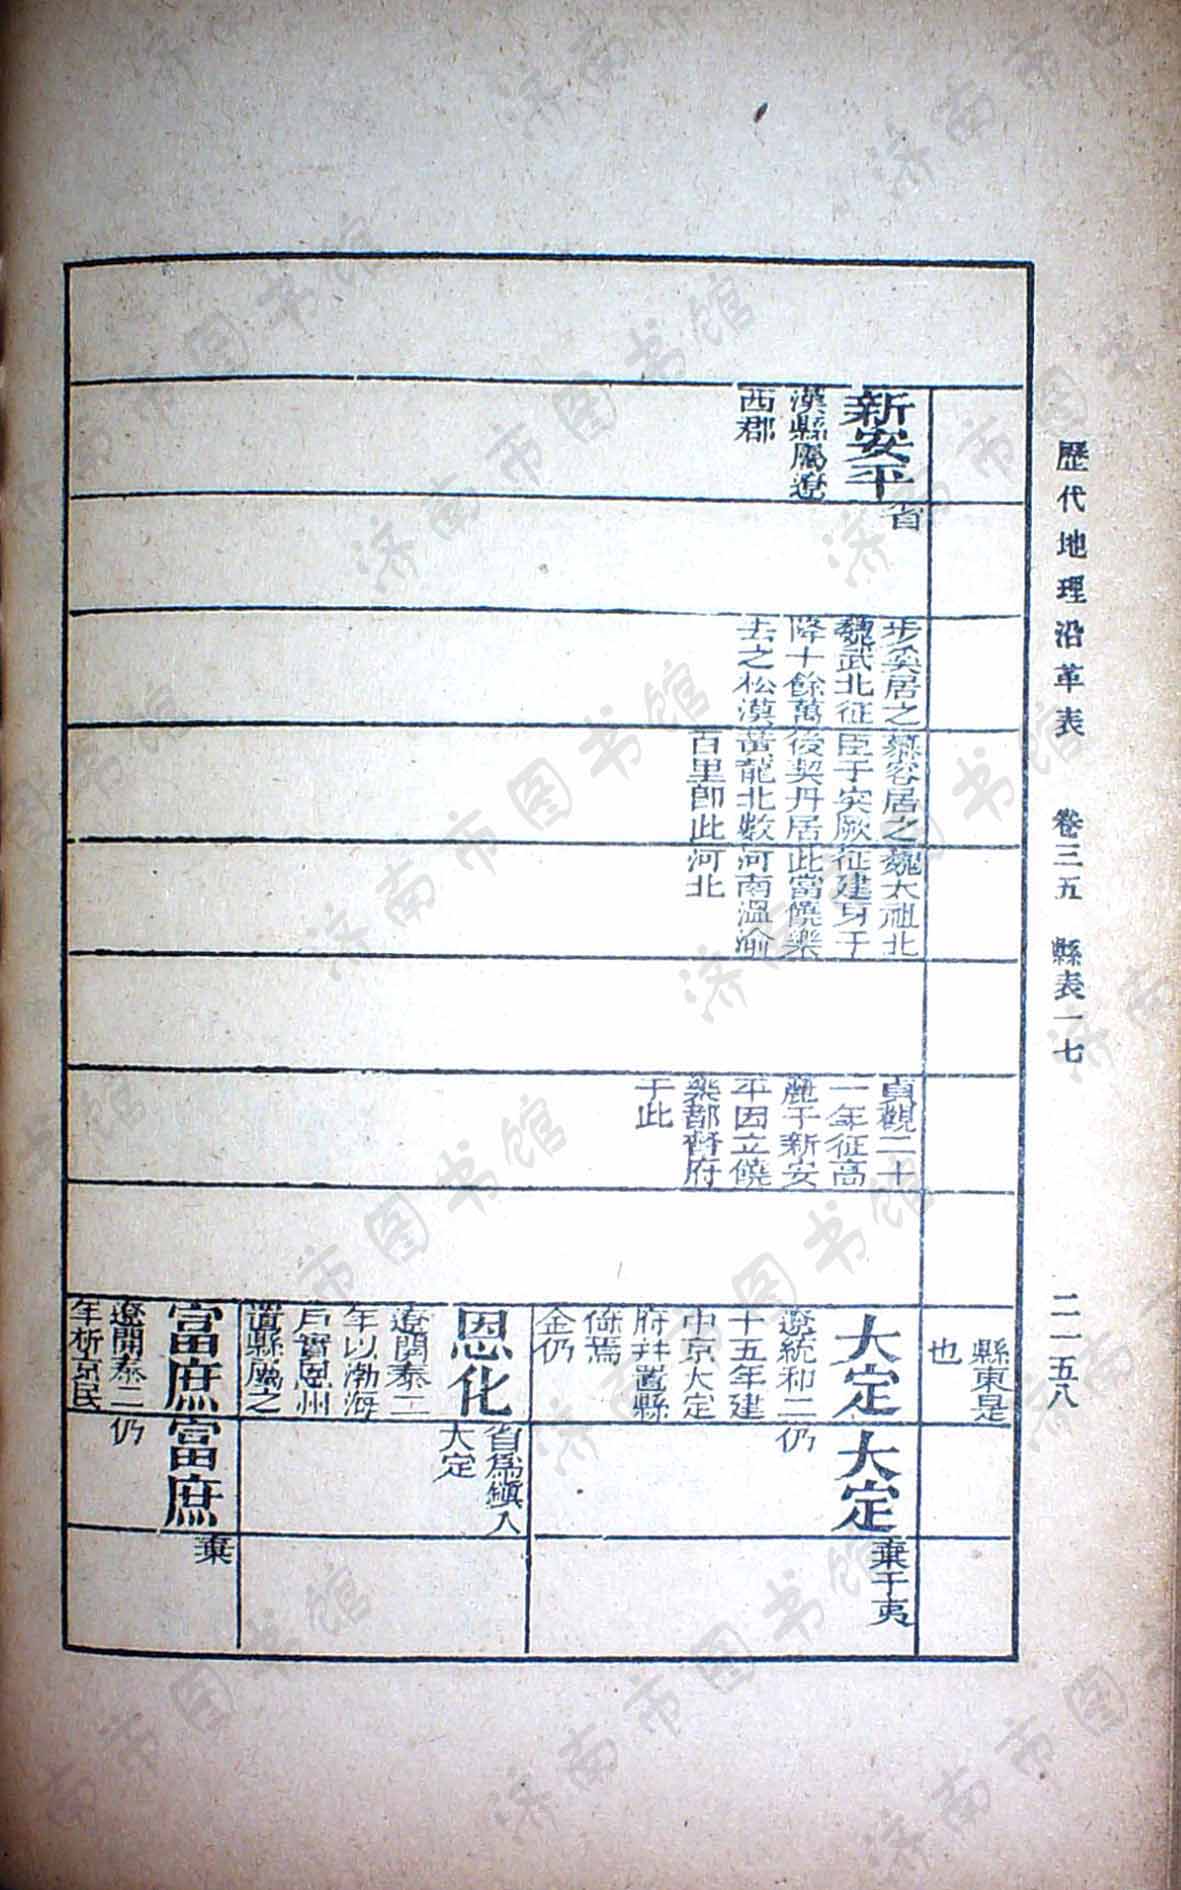 歷代地理沿革表 卷三五 縣表一七 二一五八
縣東是
也
新安平
漢縣屬遼
西郡
省
步奚居之
魏武北征
降十餘萬
去之松漠
慕容居之
臣于突厥
後契丹居
黃龍北數
百里卽此
魏太祖北
征建身于
此當饒樂
河南溫渝
河北
貞觀二十
一年征高
麗于新安
平因立饒
樂都督府
于此
大定
遼統和二
十五年建
中京大定
府幷置縣
倚焉
金仍
大定
仍
棄于夷
恩化
遼開泰二
年以渤海
戶實恩州
置縣屬之
省爲鎭入
大定
富庶
遼開泰二
年析京民
富庶
仍
棄
济南市图书馆